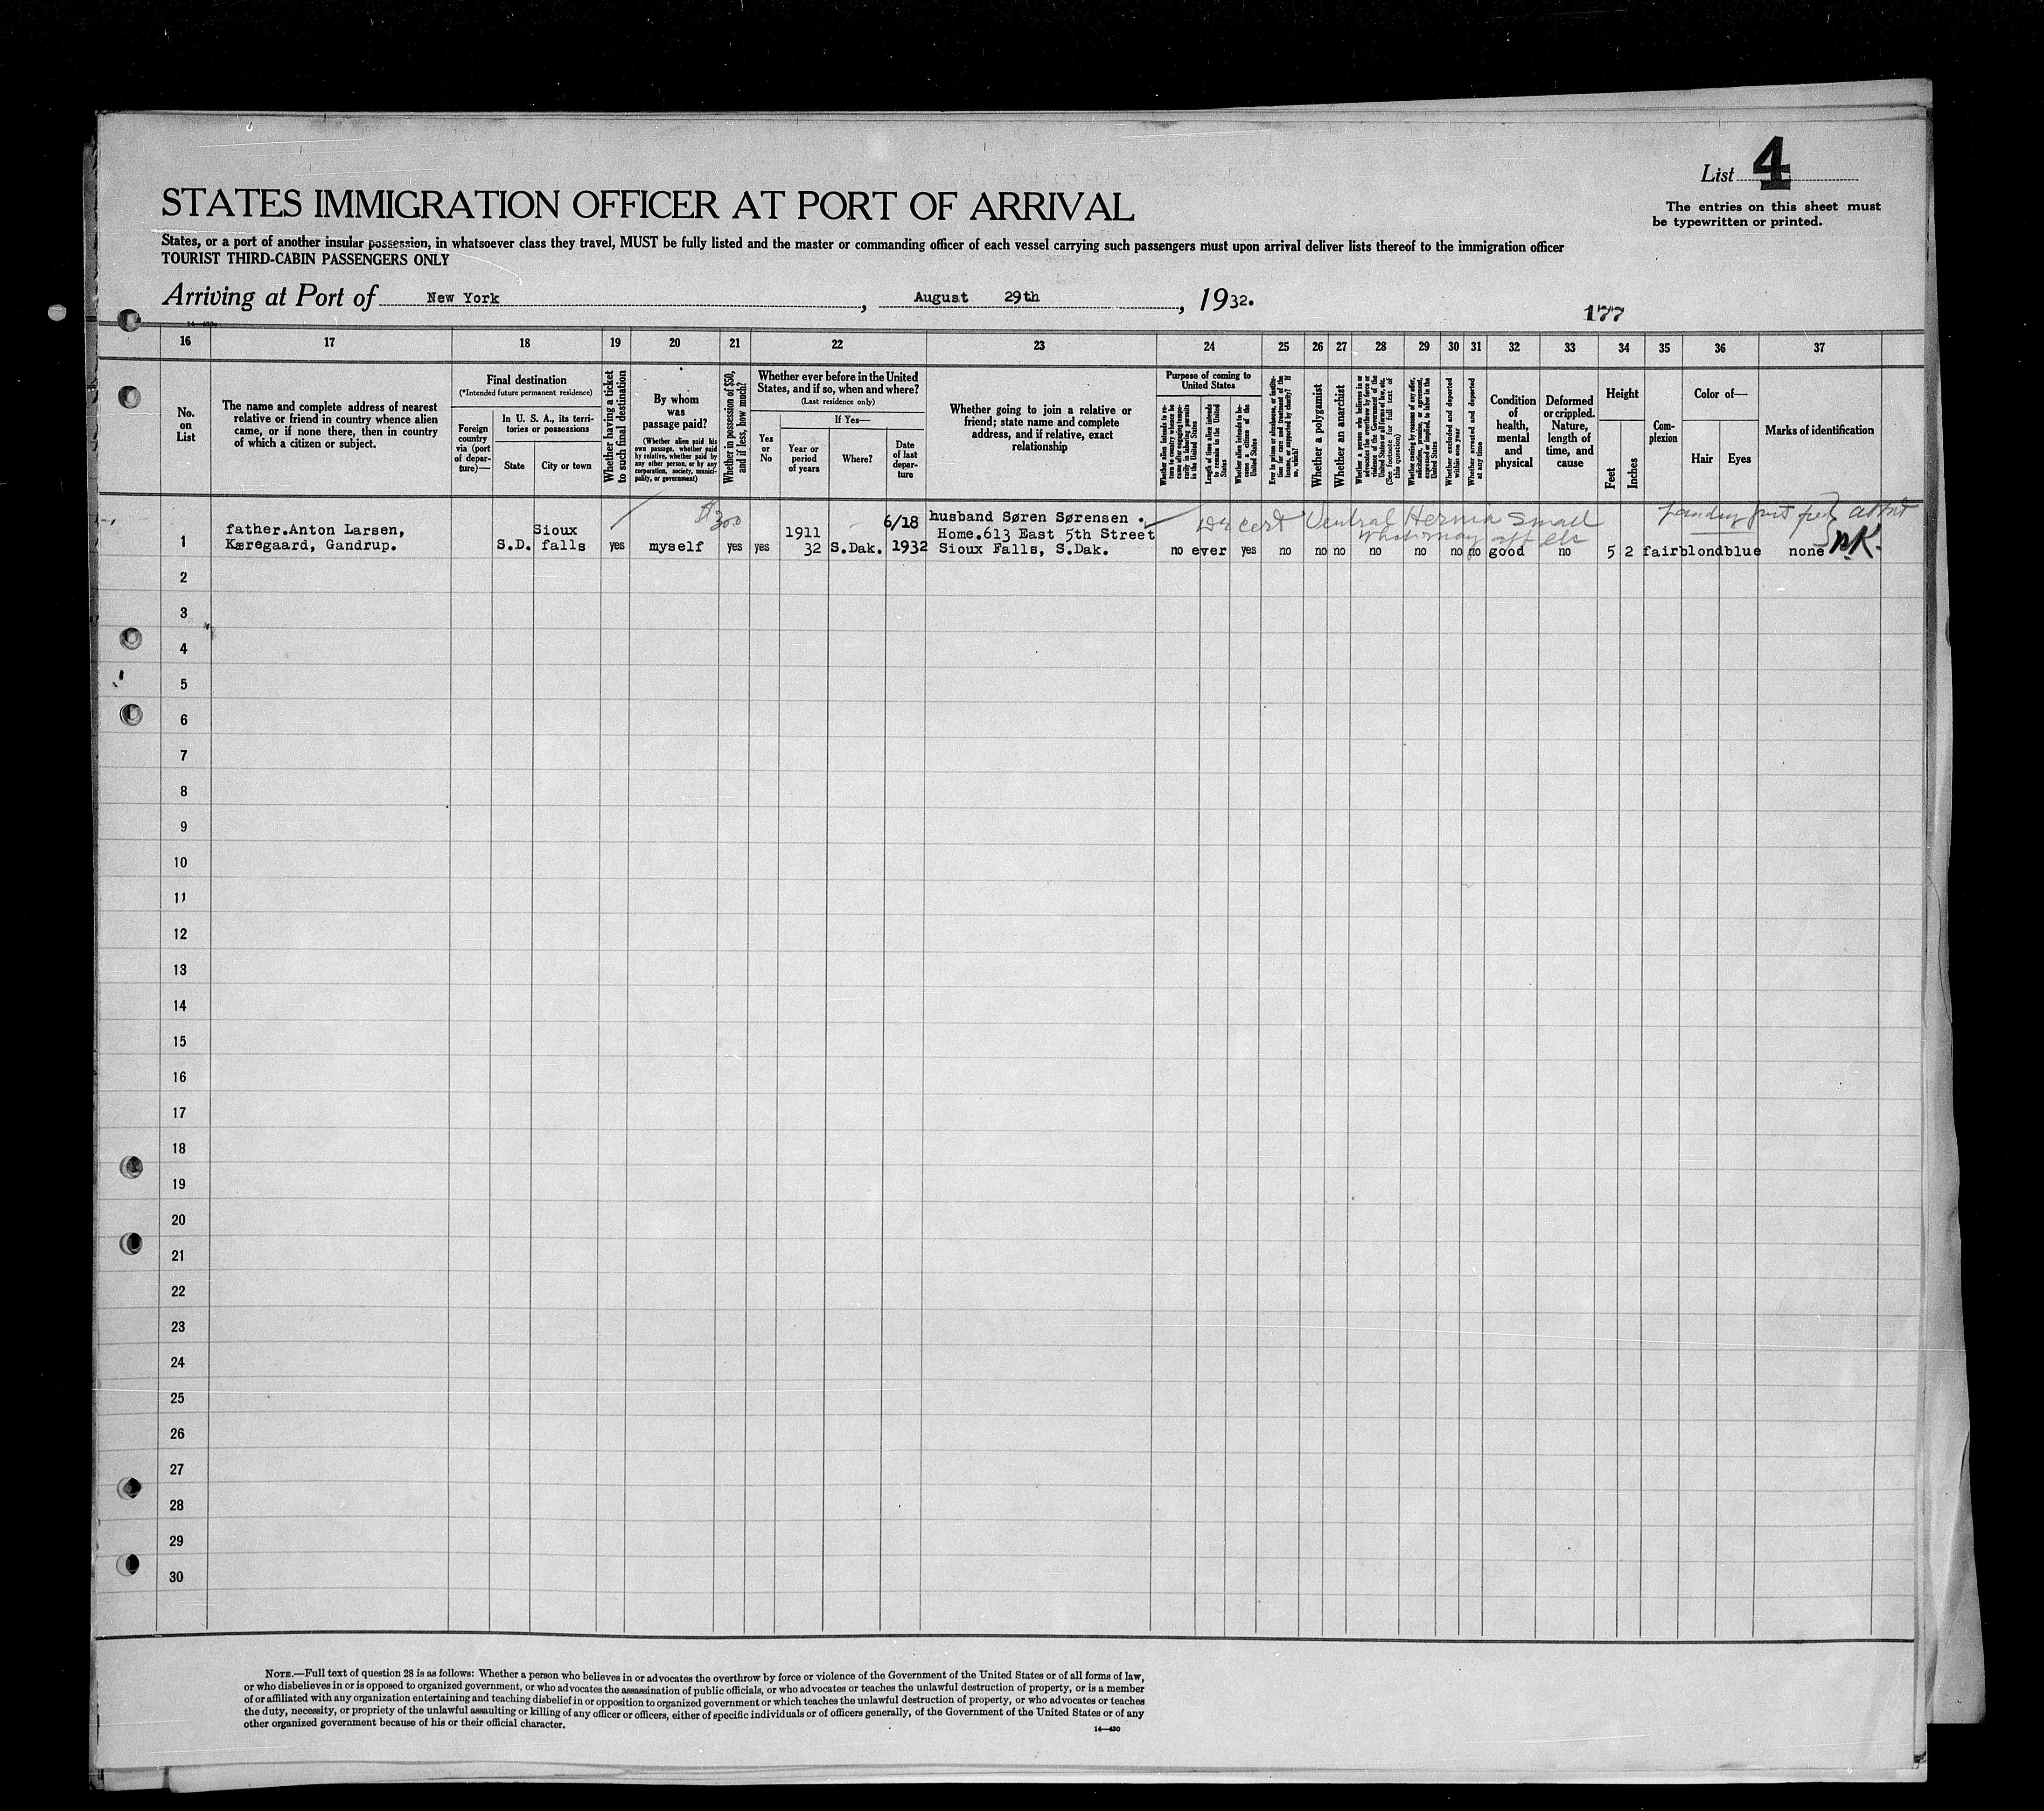 List 4
The entries on this sheet must
be typewritten or printed.
STATES IMMIGRATION OFFICER AT PORT OF ARRIVAL
States, or a port of another insular possession, in whatsoever class they travel, MUST be fully listed and the master or commanding officer of each vessel carrying such passengers must upon arrival deliver lists thereof to the immigration officer
TOURIST THIRD-CABIN PASSENGERS ONLY
Arriving at Port of New York, August 29th, 1932.
177
16 17 18 19 20 21 22 23 24 25 26 27 28 29 30 31 32 33 34 35 36 37
No.
on
List
The name and complete address of nearest
relative or friend in country whence alien
came, or if none there, then in country
of which a citizen or subject.
Final destination
(*Intended future permanent residence)
Foreign
country
via (port
of depar-
ture)—
In U. S. A., its terri-
tories or possessions
State
City or town
Whether having a ticket
to such final destination
By whom
was
passage paid?
(Whether alien paid his
own passage, whether paid
by relative, whether paid by
any other person, or by any
corporation, society, munici-
pality, or government)
Whether in possession of $50,
and if less, how much?
Whether ever before in the United
States, and if so, when and where?
(Last residence only)
Yes
or
No
If Yes—
Year or
period
of years
Where?
Date
of last
depar-
ture
Whether going to join a relative or
friend; state name and complete
address, and if relative, exact
relationship
Purpose of coming to
United States
Whether alien intends to re-
turn to country whence he
came after engaging tempo-
rarily in laboring pursuits
in the United States
Length of time alien intends
to remain in the United
States
Whether alien intends to be-
come a citizen of the
United States
Ever in prison or almshouse, or institu-
tion for care and treatment of the
insane, or supported by charity? If
so, which?
Whether a polygamist
Whether an anarchist
Whether a person who believes in or
advocates the overthrow by force or
violence of the Government of the
United States or all forms of law, etc.
(See footnote for full text of
this question)
Whether coming by reason of any offer,
solicitation, promise, or agreement,
expressed or implied, to labor in the
United States
Whether excluded and deported
within one year
Whether arrested and deported
at any time
Condition
of
health,
mental
and
physical
Deformed
or crippled.
Nature,
length of
time, and
cause
Height
Feet
Inches
Com-
plexion
Color of—
Hair
Eyes
Marks of identification
$300
Dr cert Ventral Hernia small
which may affect
6/18 husband Søren Sørensen.
father.Anton Larsen, Sioux 1911 Home.613 East 5th Street
1 Kæregaard, Gandrup. S.D. falls yes myself yes yes 32 S.Dak. 1932 Sioux Falls, S.Dak. no ever yes no no no no no no no good no 5 2 fair blond blue none
2
3
4
5
6
7
8
9
10
11
12
13
14
15
16
17
18
19
20
21
22
23
24
25
26
27
28
29
30
NOTE.—Full text of question 28 is as follows: Whether a person who believes in or advocates the overthrow by force or violence of the Government of the United States or of all forms of law,
or who disbelieves in or is opposed to organized government, or who advocates the assassination of public officials, or who advocates or teaches the unlawful destruction of property, or is a member
of or affiliated with any organization entertaining and teaching disbelief in or opposition to organized government or which teaches the unlawful destruction of property, or who advocates or teaches
the duty, necessity, or propriety of the unlawful assaulting or killing of any officer or officers, either of specific individuals or of officers generally, of the Government of the United States or of any
other organized government because of his or their official character.
14—430